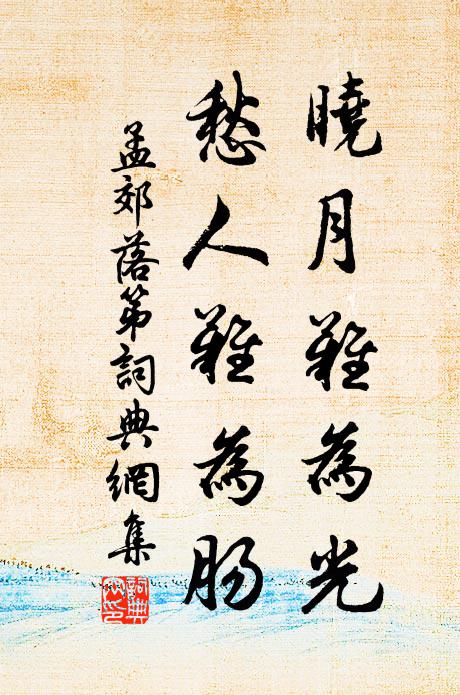 曉月難為光
愁人難為腸
孟郊落第詞典網集